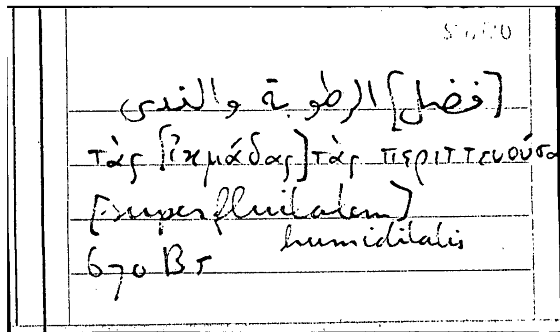 [فضل] الرطوبة والندى
τὰς [ἰκμάδας] τὰς περιττευούσα
[superfluitatem]
humiditatis
670 B 5